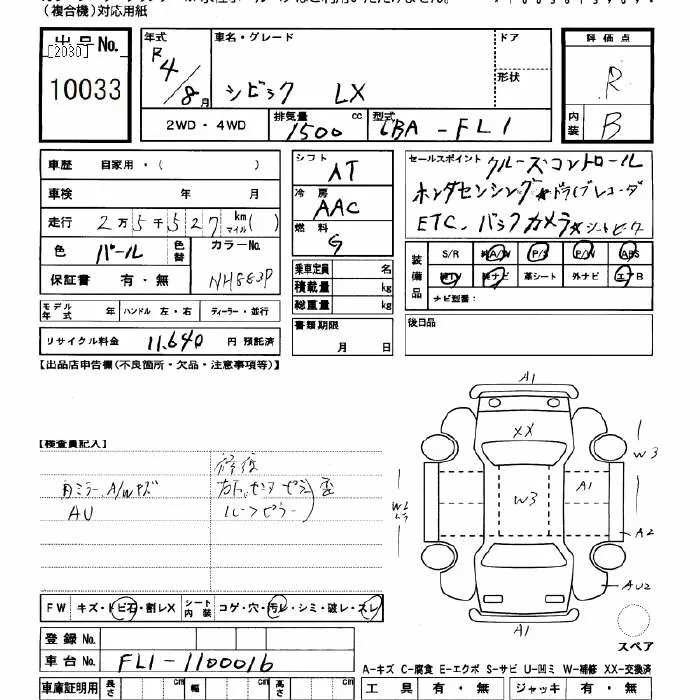 (複合機)対応用紙
出品No.
[2030]
10033
年式
R4/8月
車名・グレード
シビック LX
ドア
形状
評価点
R
内装
B
2WD・4WD
排気量
1500
cc
型式
CBA-FL1
車歴 自家用・( )
車検 年 月
走行 2万5千527 km マイル( )
色 パール
色替
カラーNo.
NH883P
保証書 有・無
シフト
AT
冷房
AAC
燃料
G
乗車定員 名
積載量 kg
総重量 kg
セールスポイント クルーズコントロール
ホンダセンシング★ドライブレコーダ
ETC、バックカメラ★シートヒーター
装備品
S/R 純A/W P/S P/W ABS
純TV 純ナビ 革シート 外ナビ エアB
ナビ型番:
モデル年式 年 ハンドル 左・右 ディーラー・並行
リサイクル料金 11,640 円 預託済
書類期限
月 日
後日品
【出品店申告欄(不良箇所・欠品・注意事項等)】
【検査員記入】
修復
内ミラー、A/Wキズ
AU
ルーフピラー
A1
XX
W3
W3
A1
A2
AU2
A1
スペア
FW キズ・トビ石・割レX シート内装 コゲ・穴・汚レ・シミ・破レ・スレ
登録No.
車台No. FL1-1100016
A-キズ C-腐食 E-エクボ S-サビ U-凹ミ W-補修 XX-交換済
車庫証明用 長さ cm 幅 cm 高さ cm
工具 有・無 ジャッキ 有・無